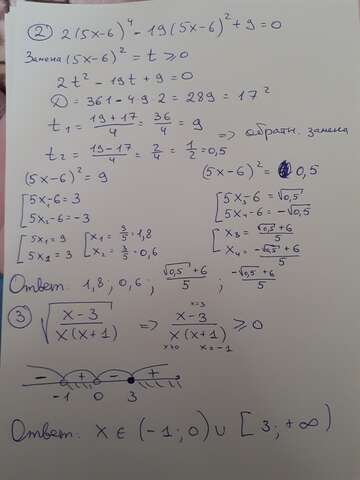 ② 2(5x-6)⁴ - 19(5x-6)² + 9 = 0
Замена (5x-6)² = t ≥ 0
2t² - 19t + 9 = 0
D = 361 - 4·9·2 = 289 = 17²
t₁ = (19+17)/4 = 36/4 = 9
=> обратн. замена
t₂ = (19-17)/4 = 2/4 = 1/2 = 0,5
(5x-6)² = 9
[5x₁-6 = 3
[5x₂-6 = -3
[5x₁ = 9
[5x₁ = 3
[x₁ = 9/5 = 1,8
[x₂ = 3/5 = 0,6
(5x-6)² = 0,5
[5x₃-6 = √0,5
[5x₄-6 = -√0,5
[x₃ = (√0,5+6)/5
[x₄ = (-√0,5+6)/5
Ответ: 1,8; 0,6; (√0,5+6)/5; (-√0,5+6)/5
③ √((x-3)/(x(x+1))) => (x-3)/(x(x+1)) ≥ 0
x=3
x≠0 x=-1
- + - +
-1 0 3
Ответ: x ∈ (-1; 0) ∪ [3; +∞)